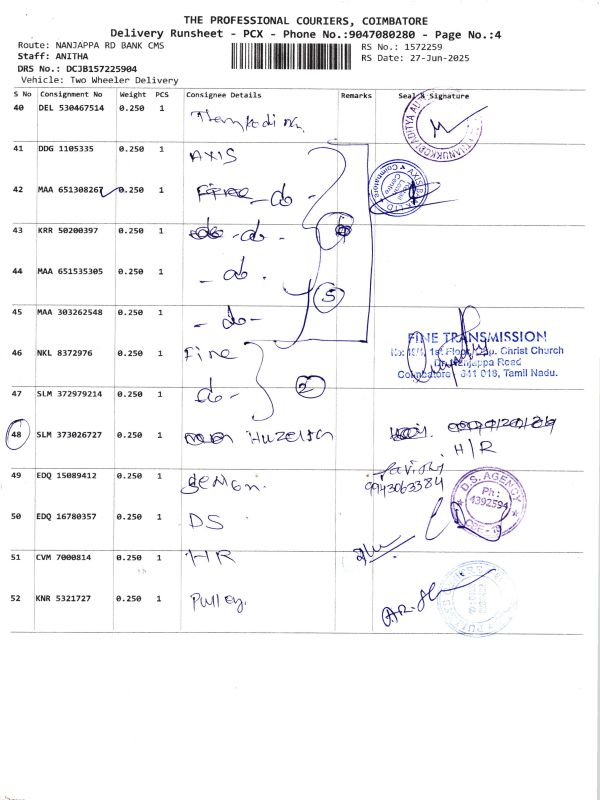 THE PROFESSIONAL COURIERS, COIMBATORE
Delivery Runsheet - PCX - Phone No.:9047080280 - Page No.:4
Route: NANJAPPA RD BANK CMS
RS No.: 1572259
Staff: ANITHA
RS Date: 27-Jun-2025
DRS No.: DCJB157225904
Vehicle: Two Wheeler Delivery
S No Consignment No Weight PCS Consignee Details Remarks Seal & Signature
40 DEL 530467514 0.250 1
41 DDG 1105335 0.250 1 AXIS
42 MAA 651308267 0.250 1 - do -
43 KRR 50200397 0.250 1 - do -
44 MAA 651535305 0.250 1 - do -
5
45 MAA 303262548 0.250 1 - do -
FINE TRANSMISSION
46 NKL 8372976 0.250 1 Fine
1st Floor, Opp. Christ Church
Nanjappa Road
Coimbatore - 641 018, Tamil Nadu.
2
47 SLM 372979214 0.250 1 do -
48 SLM 373026727 0.250 1
H/R
49 EDQ 15089412 0.250 1 9943063384
D.S. AGENCY
Ph:
4392594
CBE-18
50 EDQ 16780357 0.250 1 DS
51 CVM 7000814 0.250 1 HR
52 KNR 5321727 0.250 1